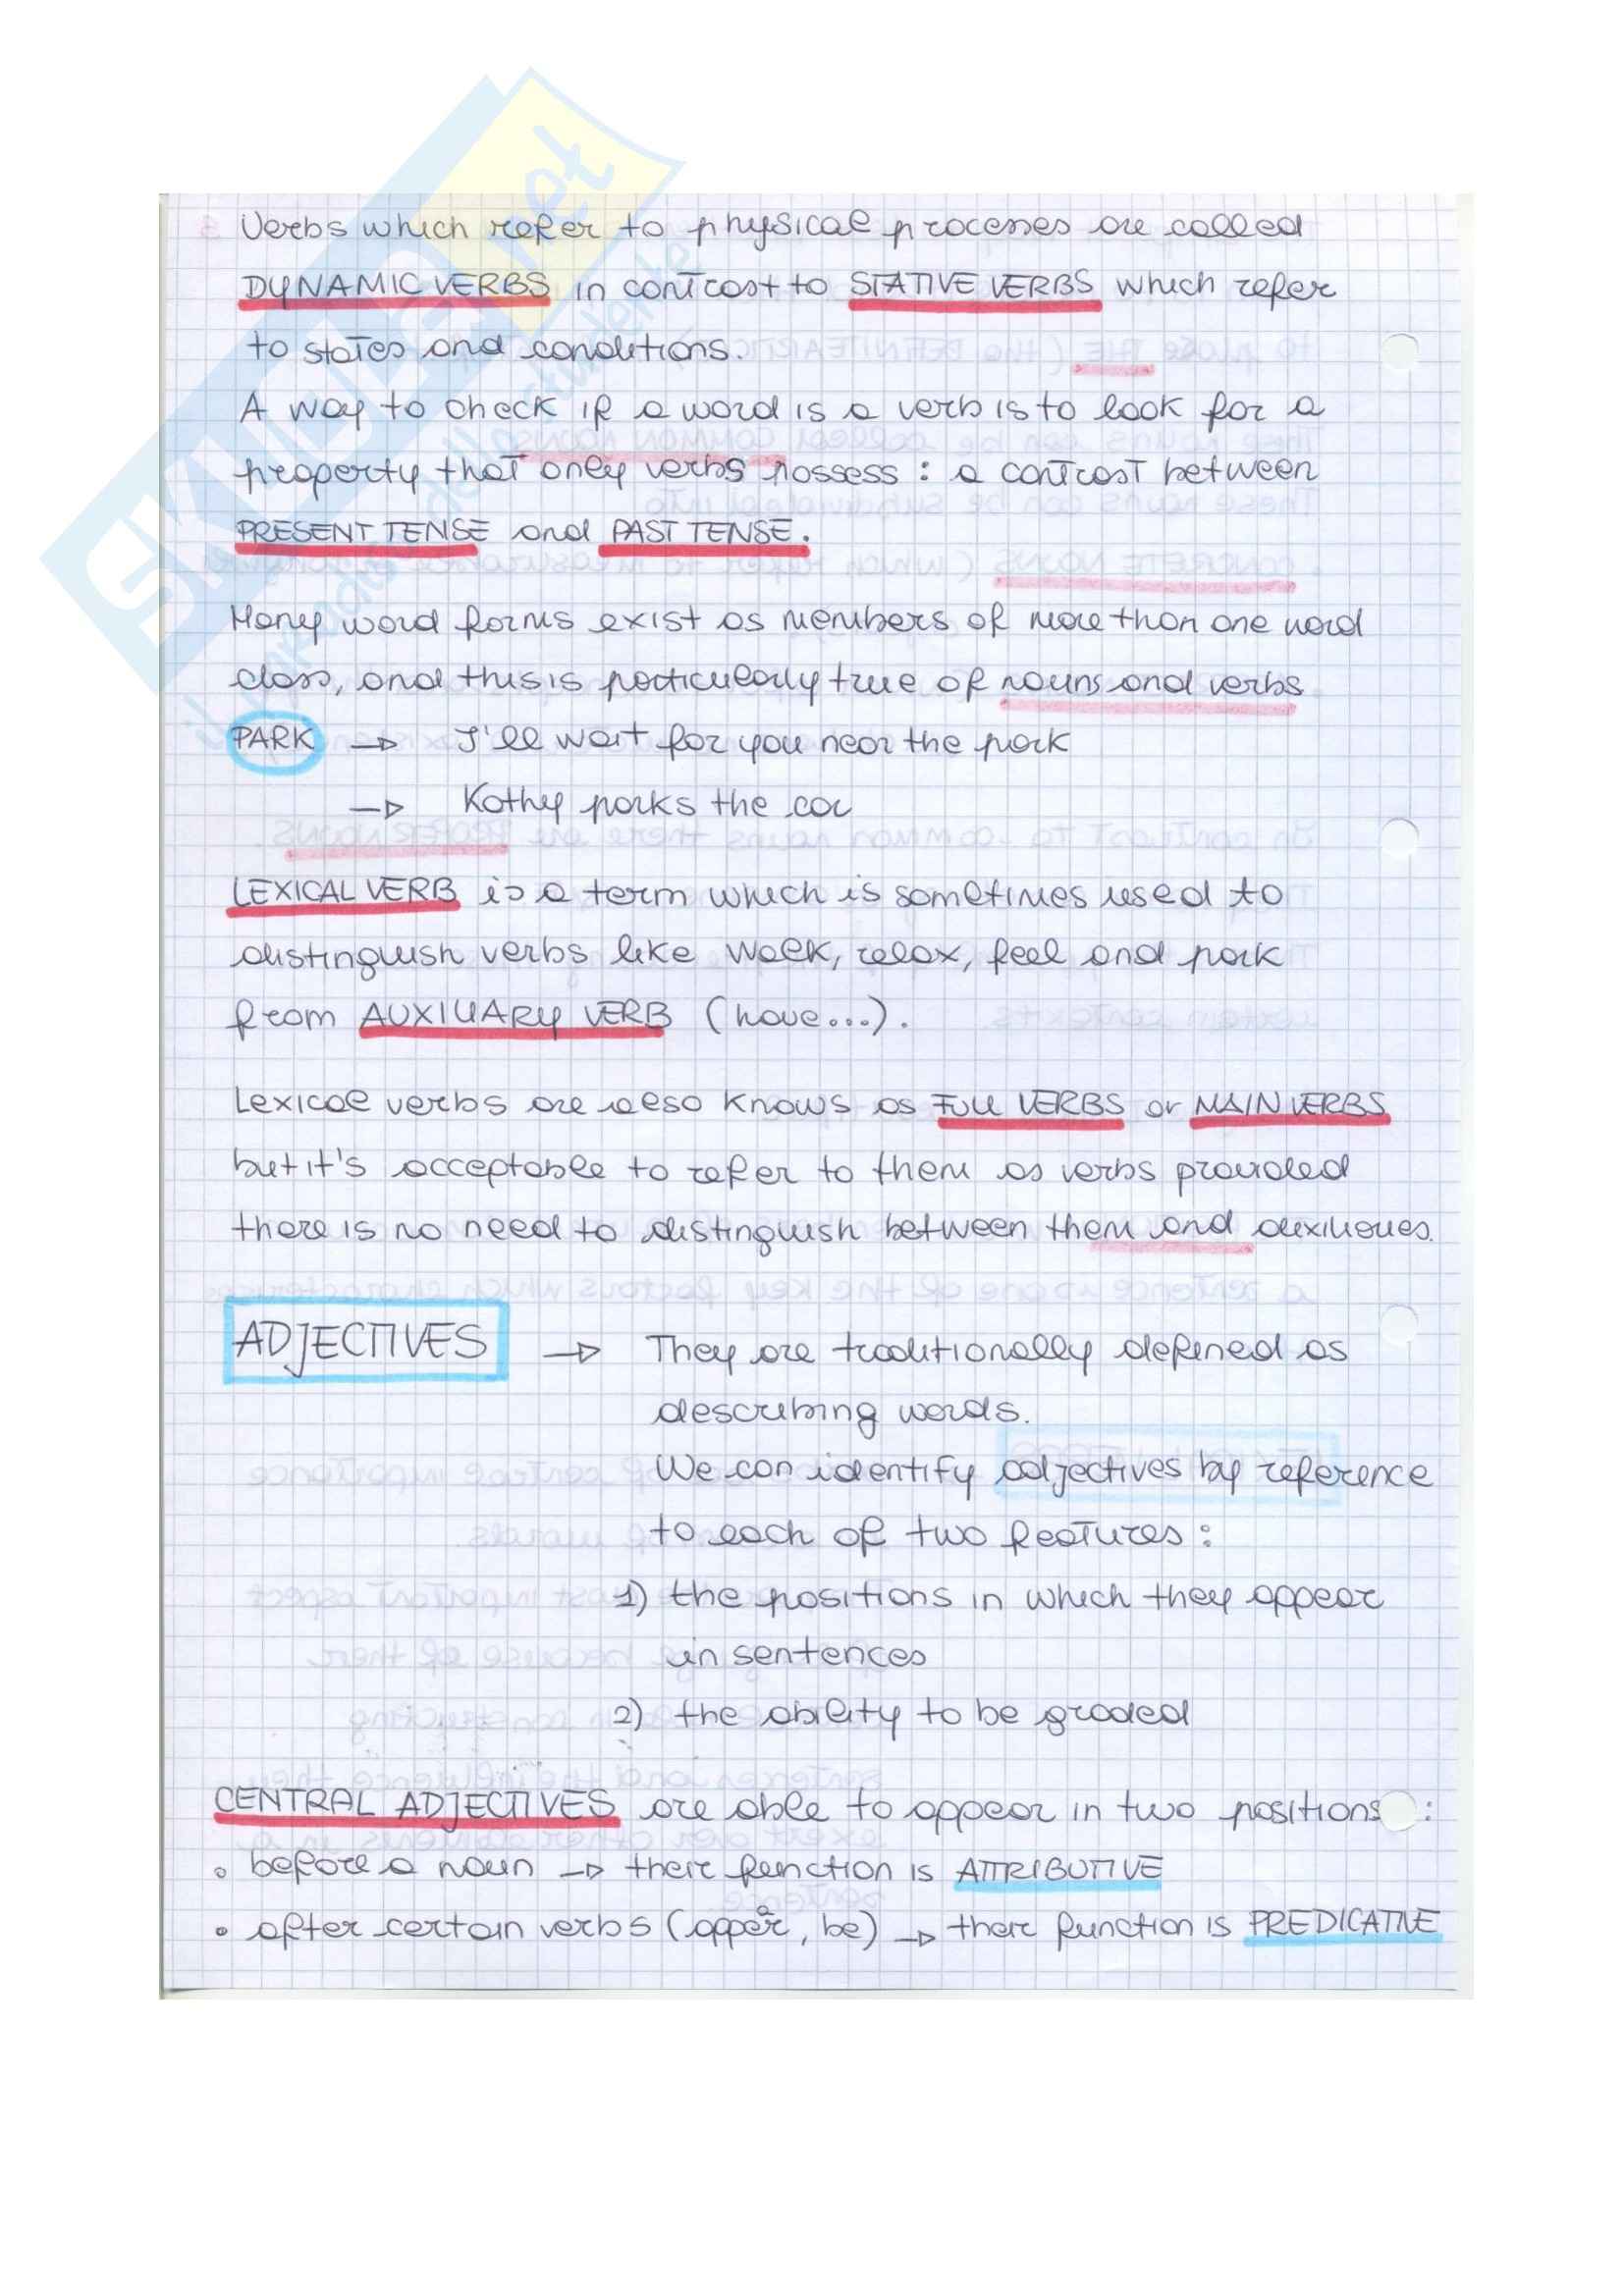 Verbs which refer to physical processes are called
DYNAMIC VERBS in contrast to STATIVE VERBS which refer
to states and conditions.
A way to check if a word is a verb is to look for a
property that only verbs possess : a contrast between
PRESENT TENSE and PAST TENSE.
Many word forms exist as members of more than one word
class, and this is particularly true of nouns and verbs
PARK → I'll wait for you near the park
→ Kathy parks the car
LEXICAL VERB is a term which is sometimes used to
distinguish verbs like walk, relax, feel and park
from AUXILIARY VERB (have...).
Lexical verbs are also knows as FULL VERBS or MAIN VERBS
but it's acceptable to refer to them as verbs provided
there is no need to distinguish between them and auxiliaries.
ADJECTIVES → They are traditionally defined as
describing words.
We can identify adjectives by reference
to each of two features :
1) the positions in which they appear
in sentences
2) the ability to be graded
CENTRAL ADJECTIVES are able to appear in two positions :
• before a noun → their function is ATTRIBUTIVE
• after certain verbs (appear, be) → their function is PREDICATIVE
SKUOLA.net